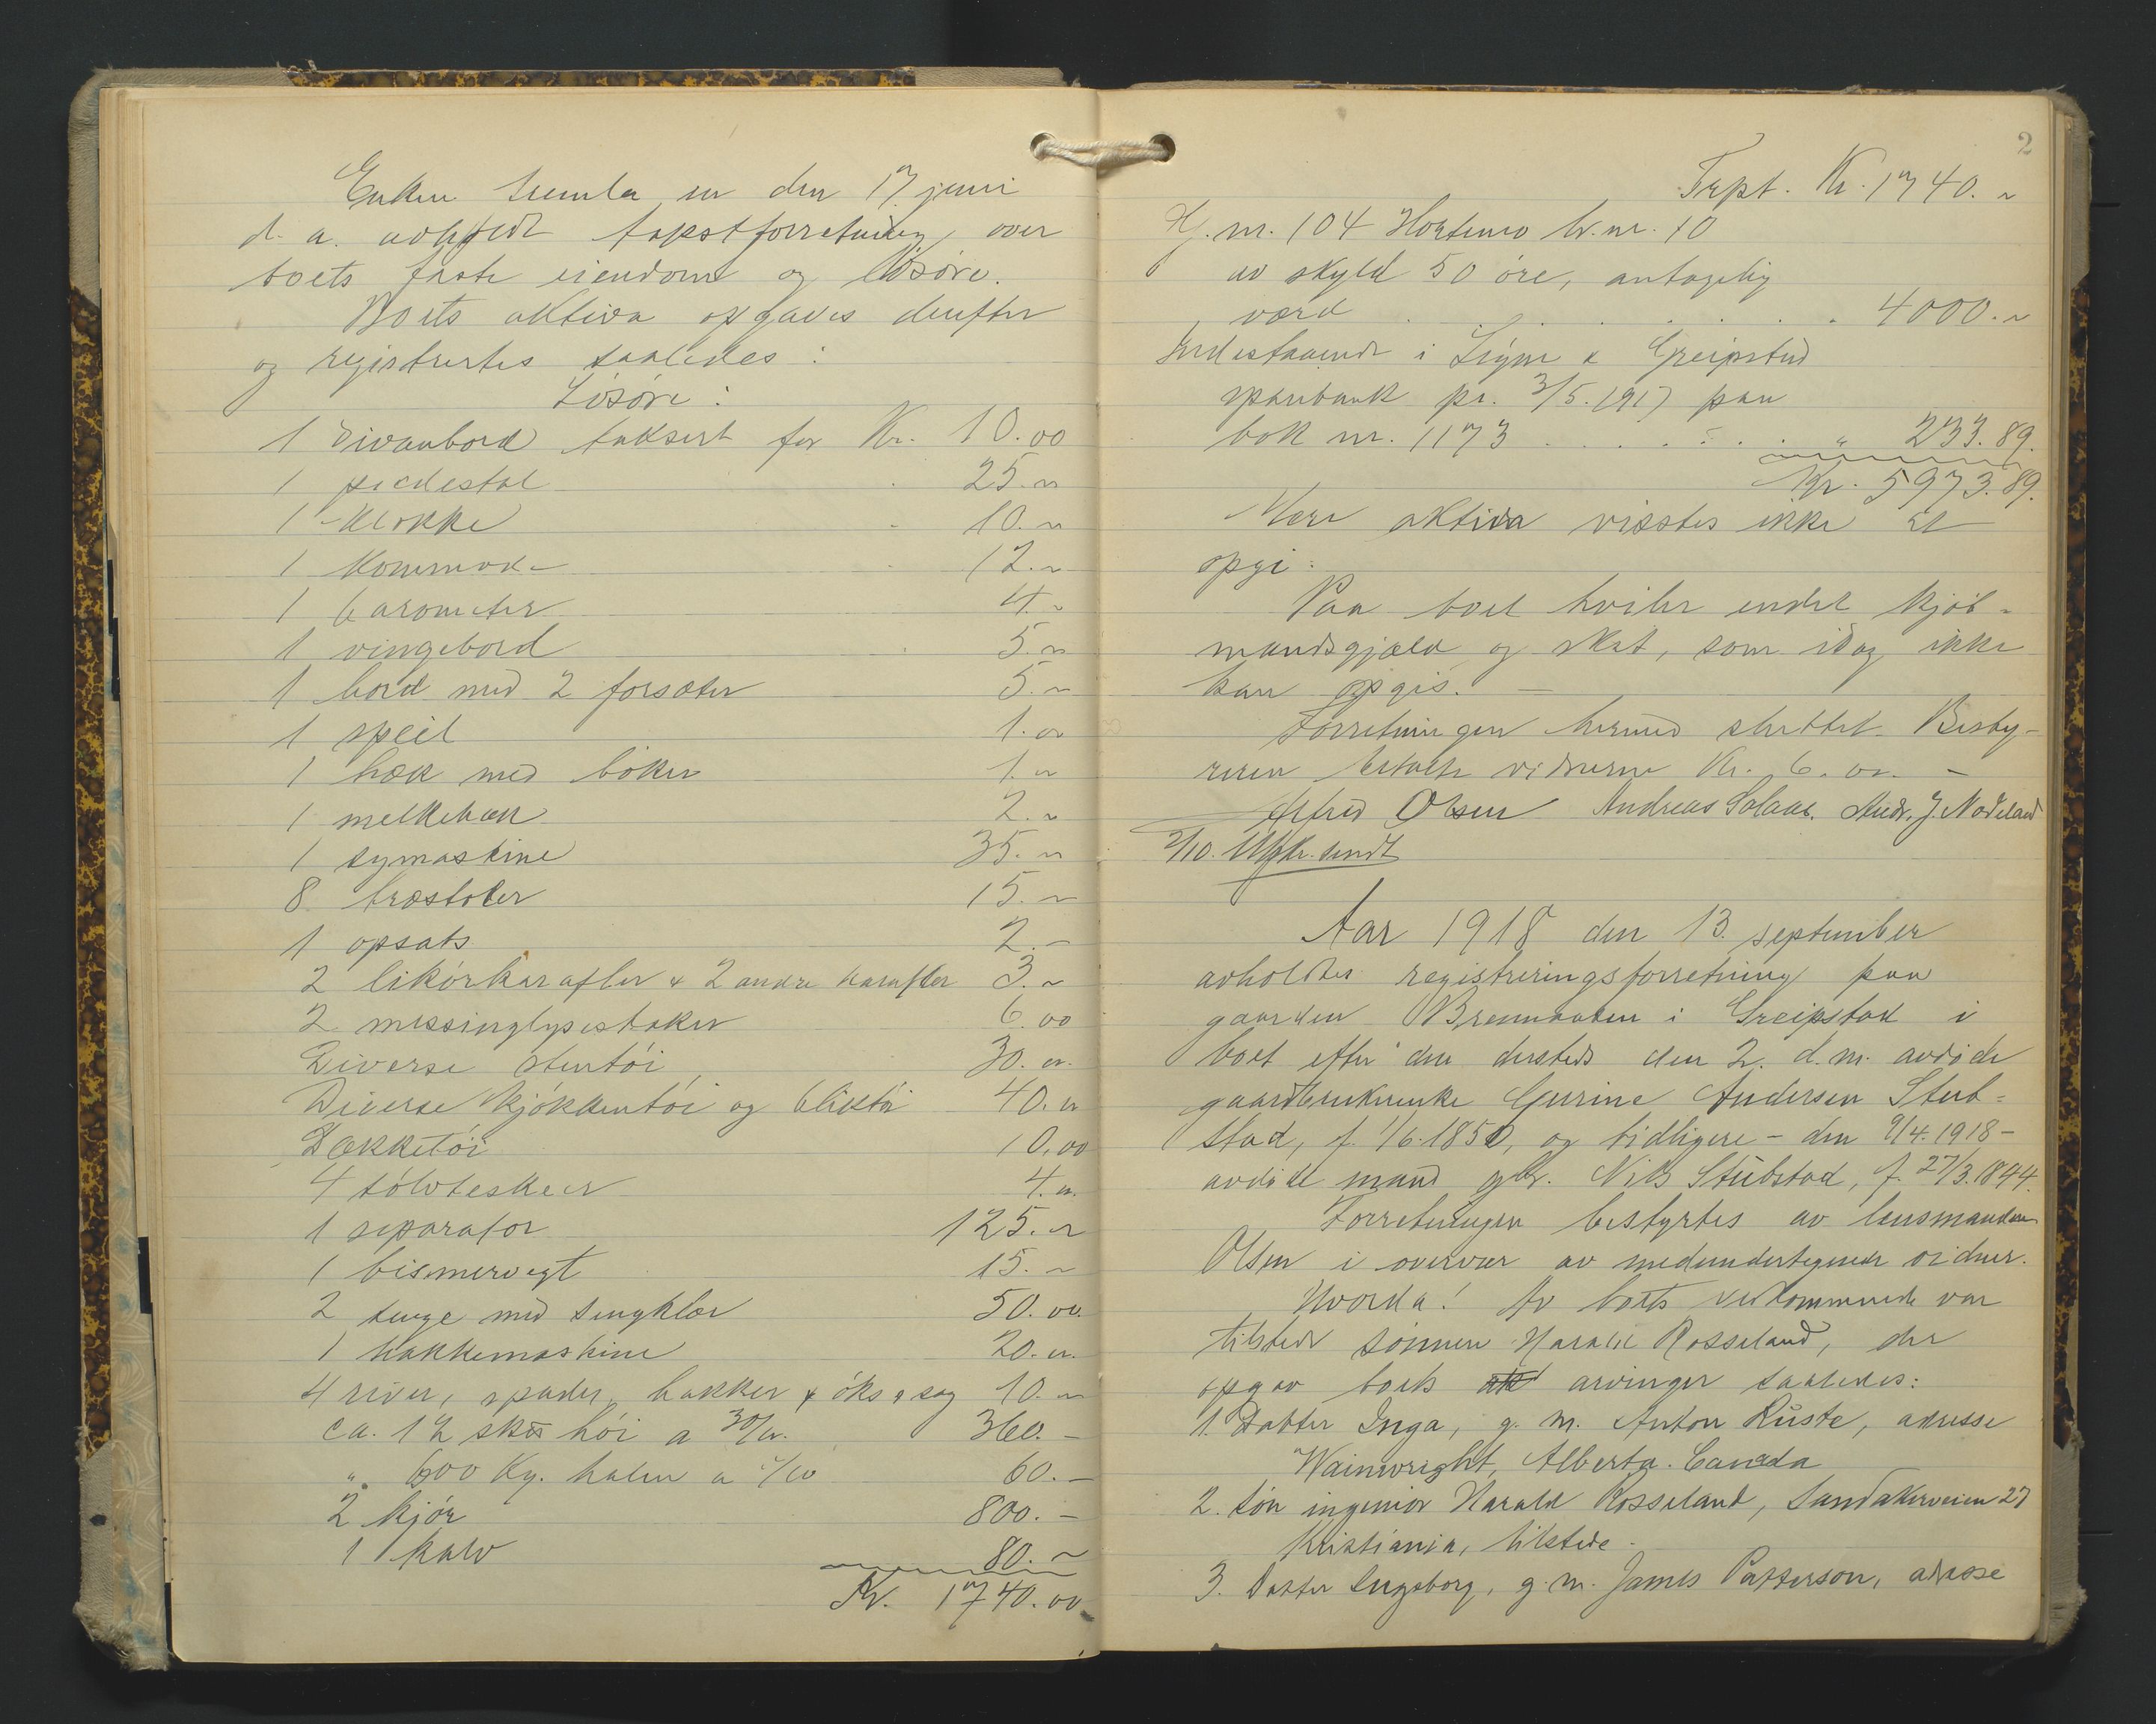 Enken fremla en den 17. juni
d. a. avholdt takstforretning over
boets faste eiendom og lösöre.
Boets aktiva opgaves derefter
og registrertes saaledes:
Lösöre:
1 divanbord taksert for Kr. 10.00
1 piedestal 25.00
1 klokke 10.00
1 kommode 12.00
1 barometer 4.00
1 vingebord 5.00
1 bord med 2 forsæter 5.00
1 speil 1.00
1 hæk med böker 1.00
1 melkehæk 2.00
1 symaskine 35.00
8 træstoler 15.00
1 opsats 2.-
2 likörkarafler & 2 andre karafler 3.00
2 messinglysestaker 6.00
Diverse stentöi 30.00
Diverse kjökkentöi og bliktöi 40.00
Dækketöi 10.00
4 sölvteskeer 4.00
1 separator 125.00
1 bismervegt 15.00
2 senge med sengklær 50.00
1 hakkemaskine 20.00
4 river, spader, hakker & öks & sag 10.00
ca. 12 sk℔ höi a 30/kr. 360.-
" 600 Kg. halm a 60.-
2 kjör 800.-
1 kalv 80.00
Kr. 1740.00
2
Trpt. Kr. 1740.00
G. nr. 104 br. nr. 10
av skyld 50 öre, antagelig
værd . . . . . . . 4000.00
Indestaaende i Søgne & Greipstad
sparebank pr. 3/5.1917 paa
bok nr. 1173 . . . . . . " 233.89.
Kr. 5973.89.
Mere aktiva visstes ikke at
opgi.
Paa boet hviler endel kjöb-
mandsgjæld og skat, som idag ikke
kan opgis. -
Forretningen hermed sluttet. Besty-
reren betalte vidnerne Kr. 6.00. -
Alfred Olsen Andreas Salaas. Andr. J. Nodeland
2/10. Utskr. sendt
Aar 1918 den 13. september
avholdtes registreringsforretning paa
gaarden Brennaaten i Greipstad i
boet efter den dersteds den 2. d. m. avdöde
gaardbrukerenke Gurine Andersen Stub-
stad, f. 1/6.1850, og tidligere - den 9/4.1918 -
avdöde mand gbr. Nils Stubstad, f. 27/3.1844.
Forretningen bestyrtes av lensmanden
Olsen i overvær av medundertegnede vidner.
Hvorda! Av boets vedkommende var
tilstede sönnen Harald Rosseland, der
opgav boets arvinger saaledes:
1. Datter Inga, g. m. Anton Ruste, adresse
Wainwright, Alberta. Canada
2. Sön ingeniör Harald Rosseland, Sandakerveien 27
Kristiania, tilstede.
3. Datter Ingeborg, g. m. James Patterson, adresse